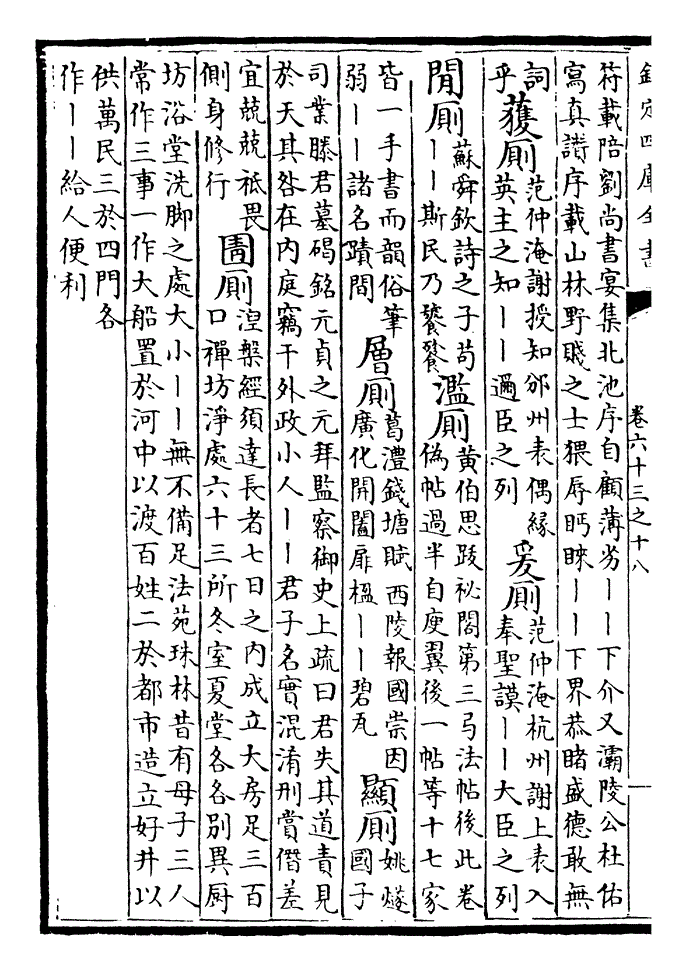 欽定四庫全書 卷六十三之十八
符載陪劉尚書宴集北池序自顧薄劣丨丨下介又灞陵公杜佑
寫真讃序載山林野賤之士猥辱眄睞丨丨下界恭睹盛德敢無
詞
乎
獲厠
范仲淹謝授知邠州表偶緣
英主之知丨丨邇臣之列
爰厠
范仲淹杭州謝上表入
奉聖謨丨丨大臣之列
閒厠
蘇舜欽詩之子苟
丨丨斯民乃饔餮
濫厠
黃伯思跋祕閣第三弓法帖後此卷
偽帖過半自庾翼後一帖等十七家
皆一手書而韻俗筆
弱丨丨諸名蹟間
層厠
葛澧錢塘賦西陵報國崇因
廣化開闔扉楹丨丨碧瓦
顯厠
姚燧
國子
司業滕君墓碣銘元貞之元拜監察御史上疏曰君失其道責見
於天其咎在内庭竊干外政小人丨丨君子名實混淆刑賞僭差
宜兢兢祗畏
側身修行
圊厠
湼槃經須達長者七日之内成立大房足三百
口禪坊淨處六十三所冬室夏堂各各別異厨
坊浴堂洗脚之處大小丨丨無不備足法苑珠林昔有母子三人
常作三事一作大船置於河中以渡百姓二於都市造立好井以
供萬民三於四門各
作丨丨給人便利